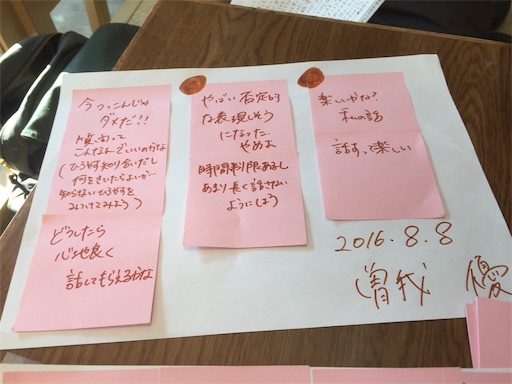 今つっこんじゃ
ダメだ!!
質問って
こんなんでいいのかな
(ひろすけ知り合いだし
何をきいたらよいか…
知らないひろすけを
みつけてみよう)
どうしたら
心地良く
話してもらえるかな
やばい否定的
な表現しそう
になった
やめよ
時間制限あるし
あまり長く話さない
ようにしよう
楽しいかな?
私の話
話すって楽しい
2016.8.8
曽我 優